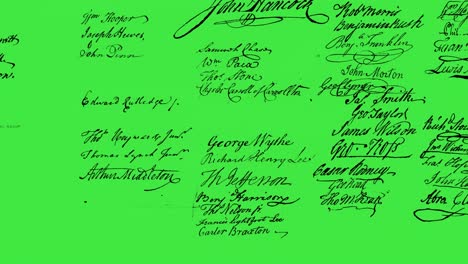 Wm Hooper
Joseph Hewes,
John Penn
Edward Rutledge /.
Thos Heyward Junr.
Thomas Lynch Junr.
Arthur Middleton
John Hancock
Samuel Chase
Wm Paca
Thos Stone
Charles Carroll of Carrollton
George Wythe
Richard Henry Lee
Th Jefferson
Benj Harrison
Thos Nelson jr.
Francis Lightfoot Lee
Carter Braxton
Robt Morris
Benjamin Rush
Benj. Franklin
John Morton
Geo Clymer
Jas. Smith
Geo. Taylor
James Wilson
Geo. Ross
Caesar Rodney
Geo Read
Tho M:Kean
Lewis
John
Abra